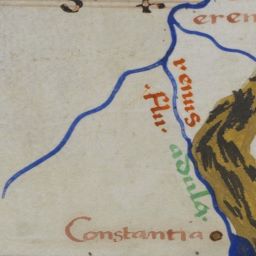 eren
renus
flu.
adula.
Constantia